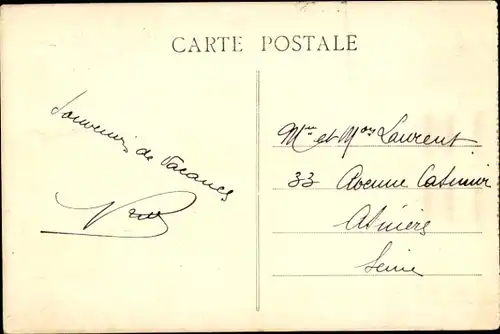 CARTE POSTALE
Souvenir de Vacances
Mr et Mme Laurent
33 Avenue Casimir
Asnières
Seine